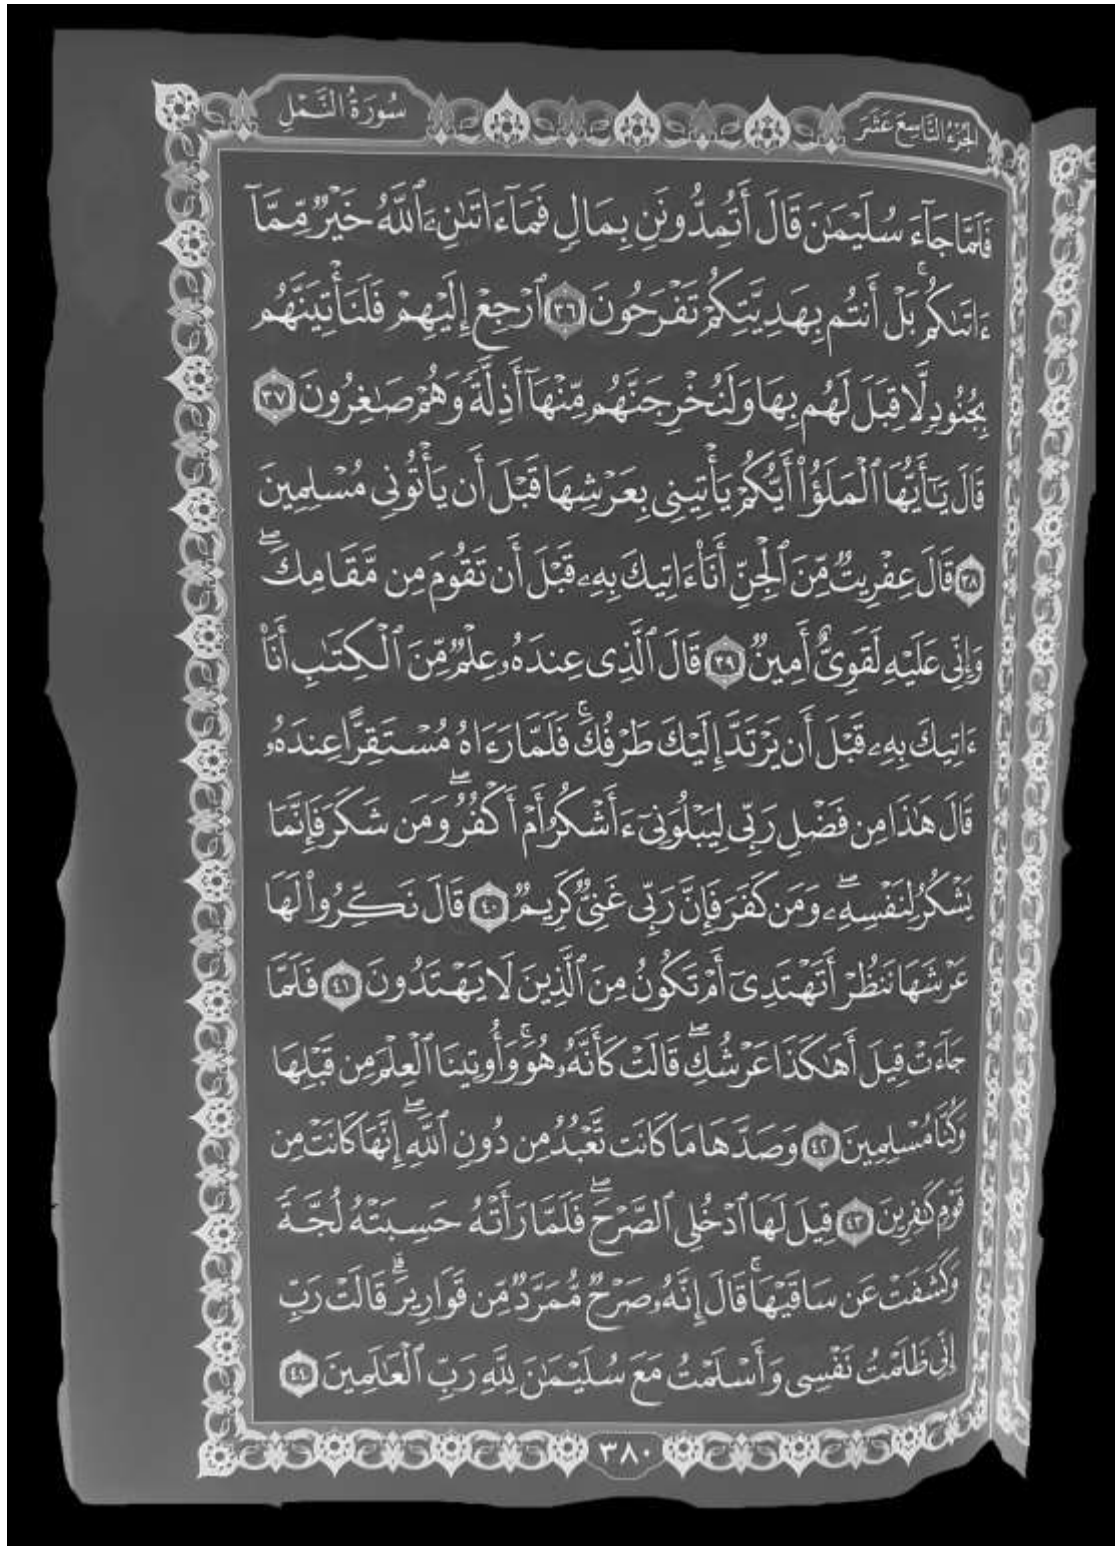 الجزء التاسع عشر
سورة النمل
فَلَمَّا جَآءَ سُلَيْمَٰنَ قَالَ أَتُمِدُّونَنِ بِمَالٍ فَمَآ ءَاتَىٰنِۦَ ٱللَّهُ خَيْرٌ مِّمَّآ
ءَاتَىٰكُمۚ بَلْ أَنتُم بِهَدِيَّتِكُمْ تَفْرَحُونَ ٣٦ ٱرْجِعْ إِلَيْهِمْ فَلَنَأْتِيَنَّهُم
بِجُنُودٍ لَّا قِبَلَ لَهُم بِهَا وَلَنُخْرِجَنَّهُم مِّنْهَآ أَذِلَّةً وَهُمْ صَٰغِرُونَ ٣٧
قَالَ يَٰٓأَيُّهَا ٱلْمَلَؤُا۟ أَيُّكُمْ يَأْتِينِى بِعَرْشِهَا قَبْلَ أَن يَأْتُونِى مُسْلِمِينَ
٣٨ قَالَ عِفْرِيتٌ مِّنَ ٱلْجِنِّ أَنَا۠ ءَاتِيكَ بِهِۦ قَبْلَ أَن تَقُومَ مِن مَّقَامِكَۖ
وَإِنِّى عَلَيْهِ لَقَوِىٌّ أَمِينٌ ٣٩ قَالَ ٱلَّذِى عِندَهُۥ عِلْمٌ مِّنَ ٱلْكِتَٰبِ أَنَا۠
ءَاتِيكَ بِهِۦ قَبْلَ أَن يَرْتَدَّ إِلَيْكَ طَرْفُكَۚ فَلَمَّا رَءَاهُ مُسْتَقِرًّا عِندَهُۥ
قَالَ هَٰذَا مِن فَضْلِ رَبِّى لِيَبْلُوَنِىٓ ءَأَشْكُرُ أَمْ أَكْفُرُۖ وَمَن شَكَرَ فَإِنَّمَا
يَشْكُرُ لِنَفْسِهِۦۖ وَمَن كَفَرَ فَإِنَّ رَبِّى غَنِىٌّ كَرِيمٌ ٤٠ قَالَ نَكِّرُوا۟ لَهَا
عَرْشَهَا نَنظُرْ أَتَهْتَدِىٓ أَمْ تَكُونُ مِنَ ٱلَّذِينَ لَا يَهْتَدُونَ ٤١ فَلَمَّا
جَآءَتْ قِيلَ أَهَٰكَذَا عَرْشُكِۖ قَالَتْ كَأَنَّهُۥ هُوَۚ وَأُوتِينَا ٱلْعِلْمَ مِن قَبْلِهَا
وَكُنَّا مُسْلِمِينَ ٤٢ وَصَدَّهَا مَا كَانَت تَّعْبُدُ مِن دُونِ ٱللَّهِۖ إِنَّهَا كَانَتْ مِن
قَوْمٍ كَٰفِرِينَ ٤٣ قِيلَ لَهَا ٱدْخُلِى ٱلصَّرْحَۖ فَلَمَّا رَأَتْهُ حَسِبَتْهُ لُجَّةً
وَكَشَفَتْ عَن سَاقَيْهَاۚ قَالَ إِنَّهُۥ صَرْحٌ مُّمَرَّدٌ مِّن قَوَارِيرَۗ قَالَتْ رَبِّ
إِنِّى ظَلَمْتُ نَفْسِى وَأَسْلَمْتُ مَعَ سُلَيْمَٰنَ لِلَّهِ رَبِّ ٱلْعَٰلَمِينَ ٤٤
٣٨٠